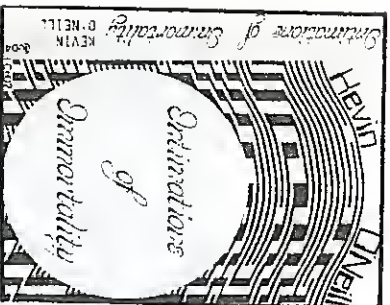 Intimations of Immortality
KEVIN
O'NEILL
Intimations
of
Immortality
Kevin O'Neill